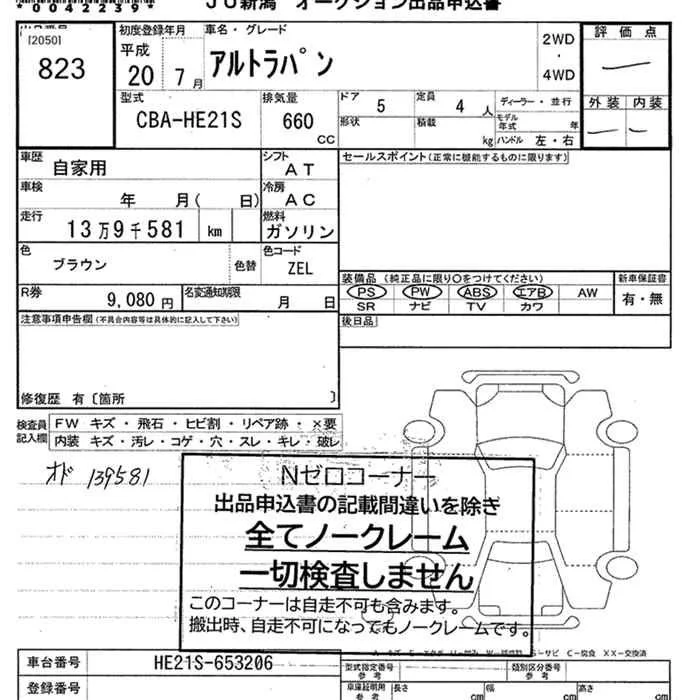 *0042239*
JU新潟 オークション出品申込書
[2050]
823
初度登録年月
平成
20年7月
車名・グレード
アルトラパン
2WD
・
4WD
評価点
型式
CBA-HE21S
排気量
660
CC
ドア
5
定員
4人
ディーラー・並行
外装 内装
形状
積載
kg
モデル年式
年
ハンドル 左・右
車歴
自家用
シフト
AT
セールスポイント(正常に機能するものに限ります)
車検
年 月( 日)
冷房
AC
走行
13万9千581 km
燃料
ガソリン
色
ブラウン
色替
色コード
ZEL
装備品 (純正品に限り○をつけてください)
新車保証書
PS PW ABS エアB AW
SR ナビ TV カワ
有・無
R券
9,080円
名変通知期限
月 日
注意事項申告欄(不具合内容等は具体的に記入して下さい)
後日品
修復歴 有〔箇所 〕
検査員
記入欄
FW キズ・飛石・ヒビ割・リペア跡・×要
内装 キズ・汚レ・コゲ・穴・スレ・キレ・破レ
オド 139581
Nゼロコーナー
出品申込書の記載間違いを除き
全てノークレーム
一切検査しません
このコーナーは自走不可も含みます。
搬出時、自走不可になってもノークレームです。
S-サビ C-腐食 XX-交換済
車台番号
HE21S-653206
型式指定番号
参考
類別区分番号
参考
登録番号
車庫証明用
参考
長さ
cm
幅
cm
高さ
cm